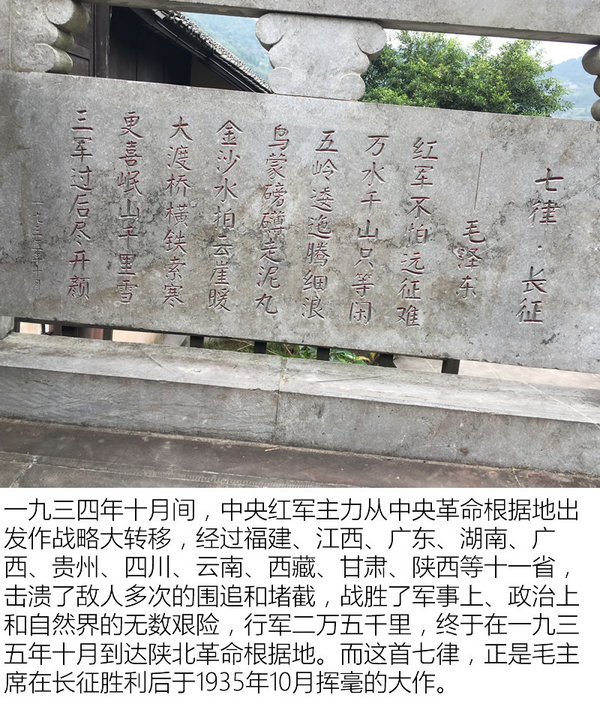 七律·长征
——毛泽东
红军不怕远征难
万水千山只等闲
五岭逶迤腾细浪
乌蒙磅礴走泥丸
金沙水拍云崖暖
大渡桥横铁索寒
更喜岷山千里雪
三军过后尽开颜
一九三五年十月
一九三四年十月间，中央红军主力从中央革命根据地出
发作战略大转移，经过福建、江西、广东、湖南、广
西、贵州、四川、云南、西藏、甘肃、陕西等十一省，
击溃了敌人多次的围追和堵截，战胜了军事上、政治上
和自然界的无数艰险，行军二万五千里，终于在一九三
五年十月到达陕北革命根据地。而这首七律，正是毛主
席在长征胜利后于1935年10月挥毫的大作。